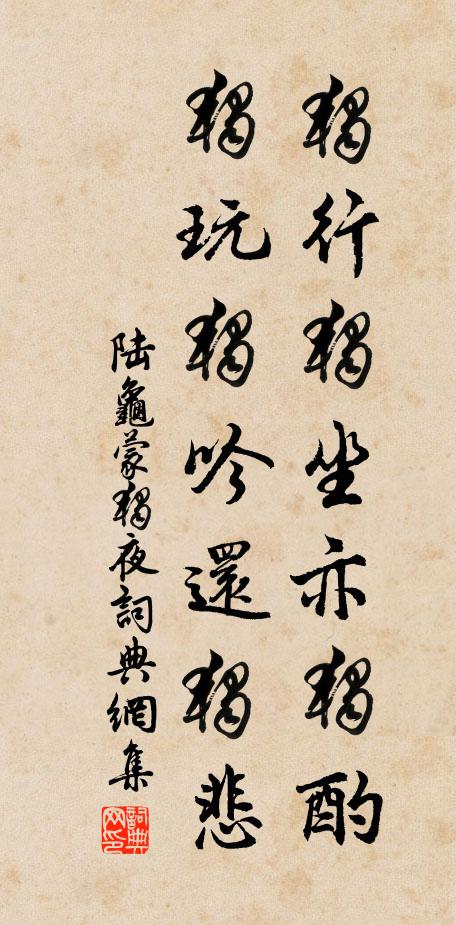 獨行獨坐亦獨酌
獨玩獨吟還獨悲
陆龜蒙獨夜詞典網集
詞典網印